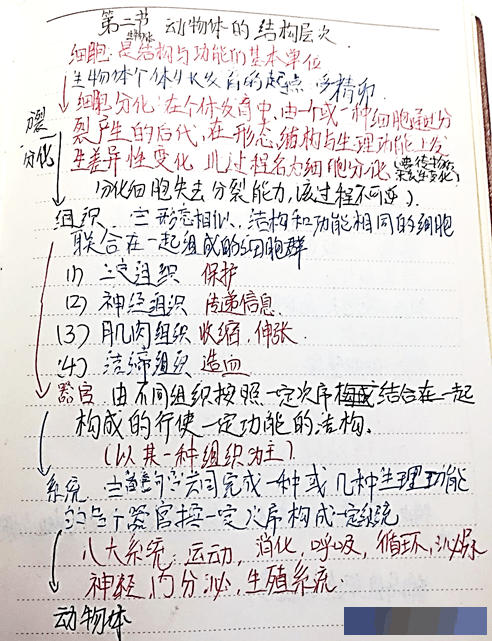 第二节 动物体的结构层次
细胞:是生物体结构与功能的基本单位
生物体个体生长发育的起点 受精卵
细胞分化:在个体发育中,由一个或一种细胞通过分
裂 分化
裂产生的后代,在形态,结构与生理功能上发
生差异性变化 此过程名为细胞分化
分化细胞失去分裂能力,该过程不可逆).
组织 形态相似、结构和功能相同的细胞
联合在一起组成的细胞群
(1) 上皮组织 保护
(2) 神经组织 传递信息.
(3) 肌肉组织 收缩,伸张.
(4) 结缔组织 造血
器官 由不同组织按照一定次序结合在一起
构成的行使一定功能的结构.
(以某一种组织为主).
系统 共同完成一种或几种生理功能
的多个器官按一定次序构成
八大系统:运动,消化,呼吸,循环,泌尿
神经,内分泌,生殖系统
动物体